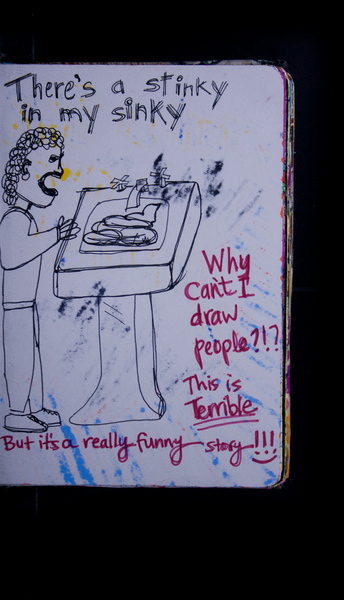 There's a stinky
in my sinky
Why
Can't I
draw
people?!?
This is
Terrible
But it's a really funny story!!!